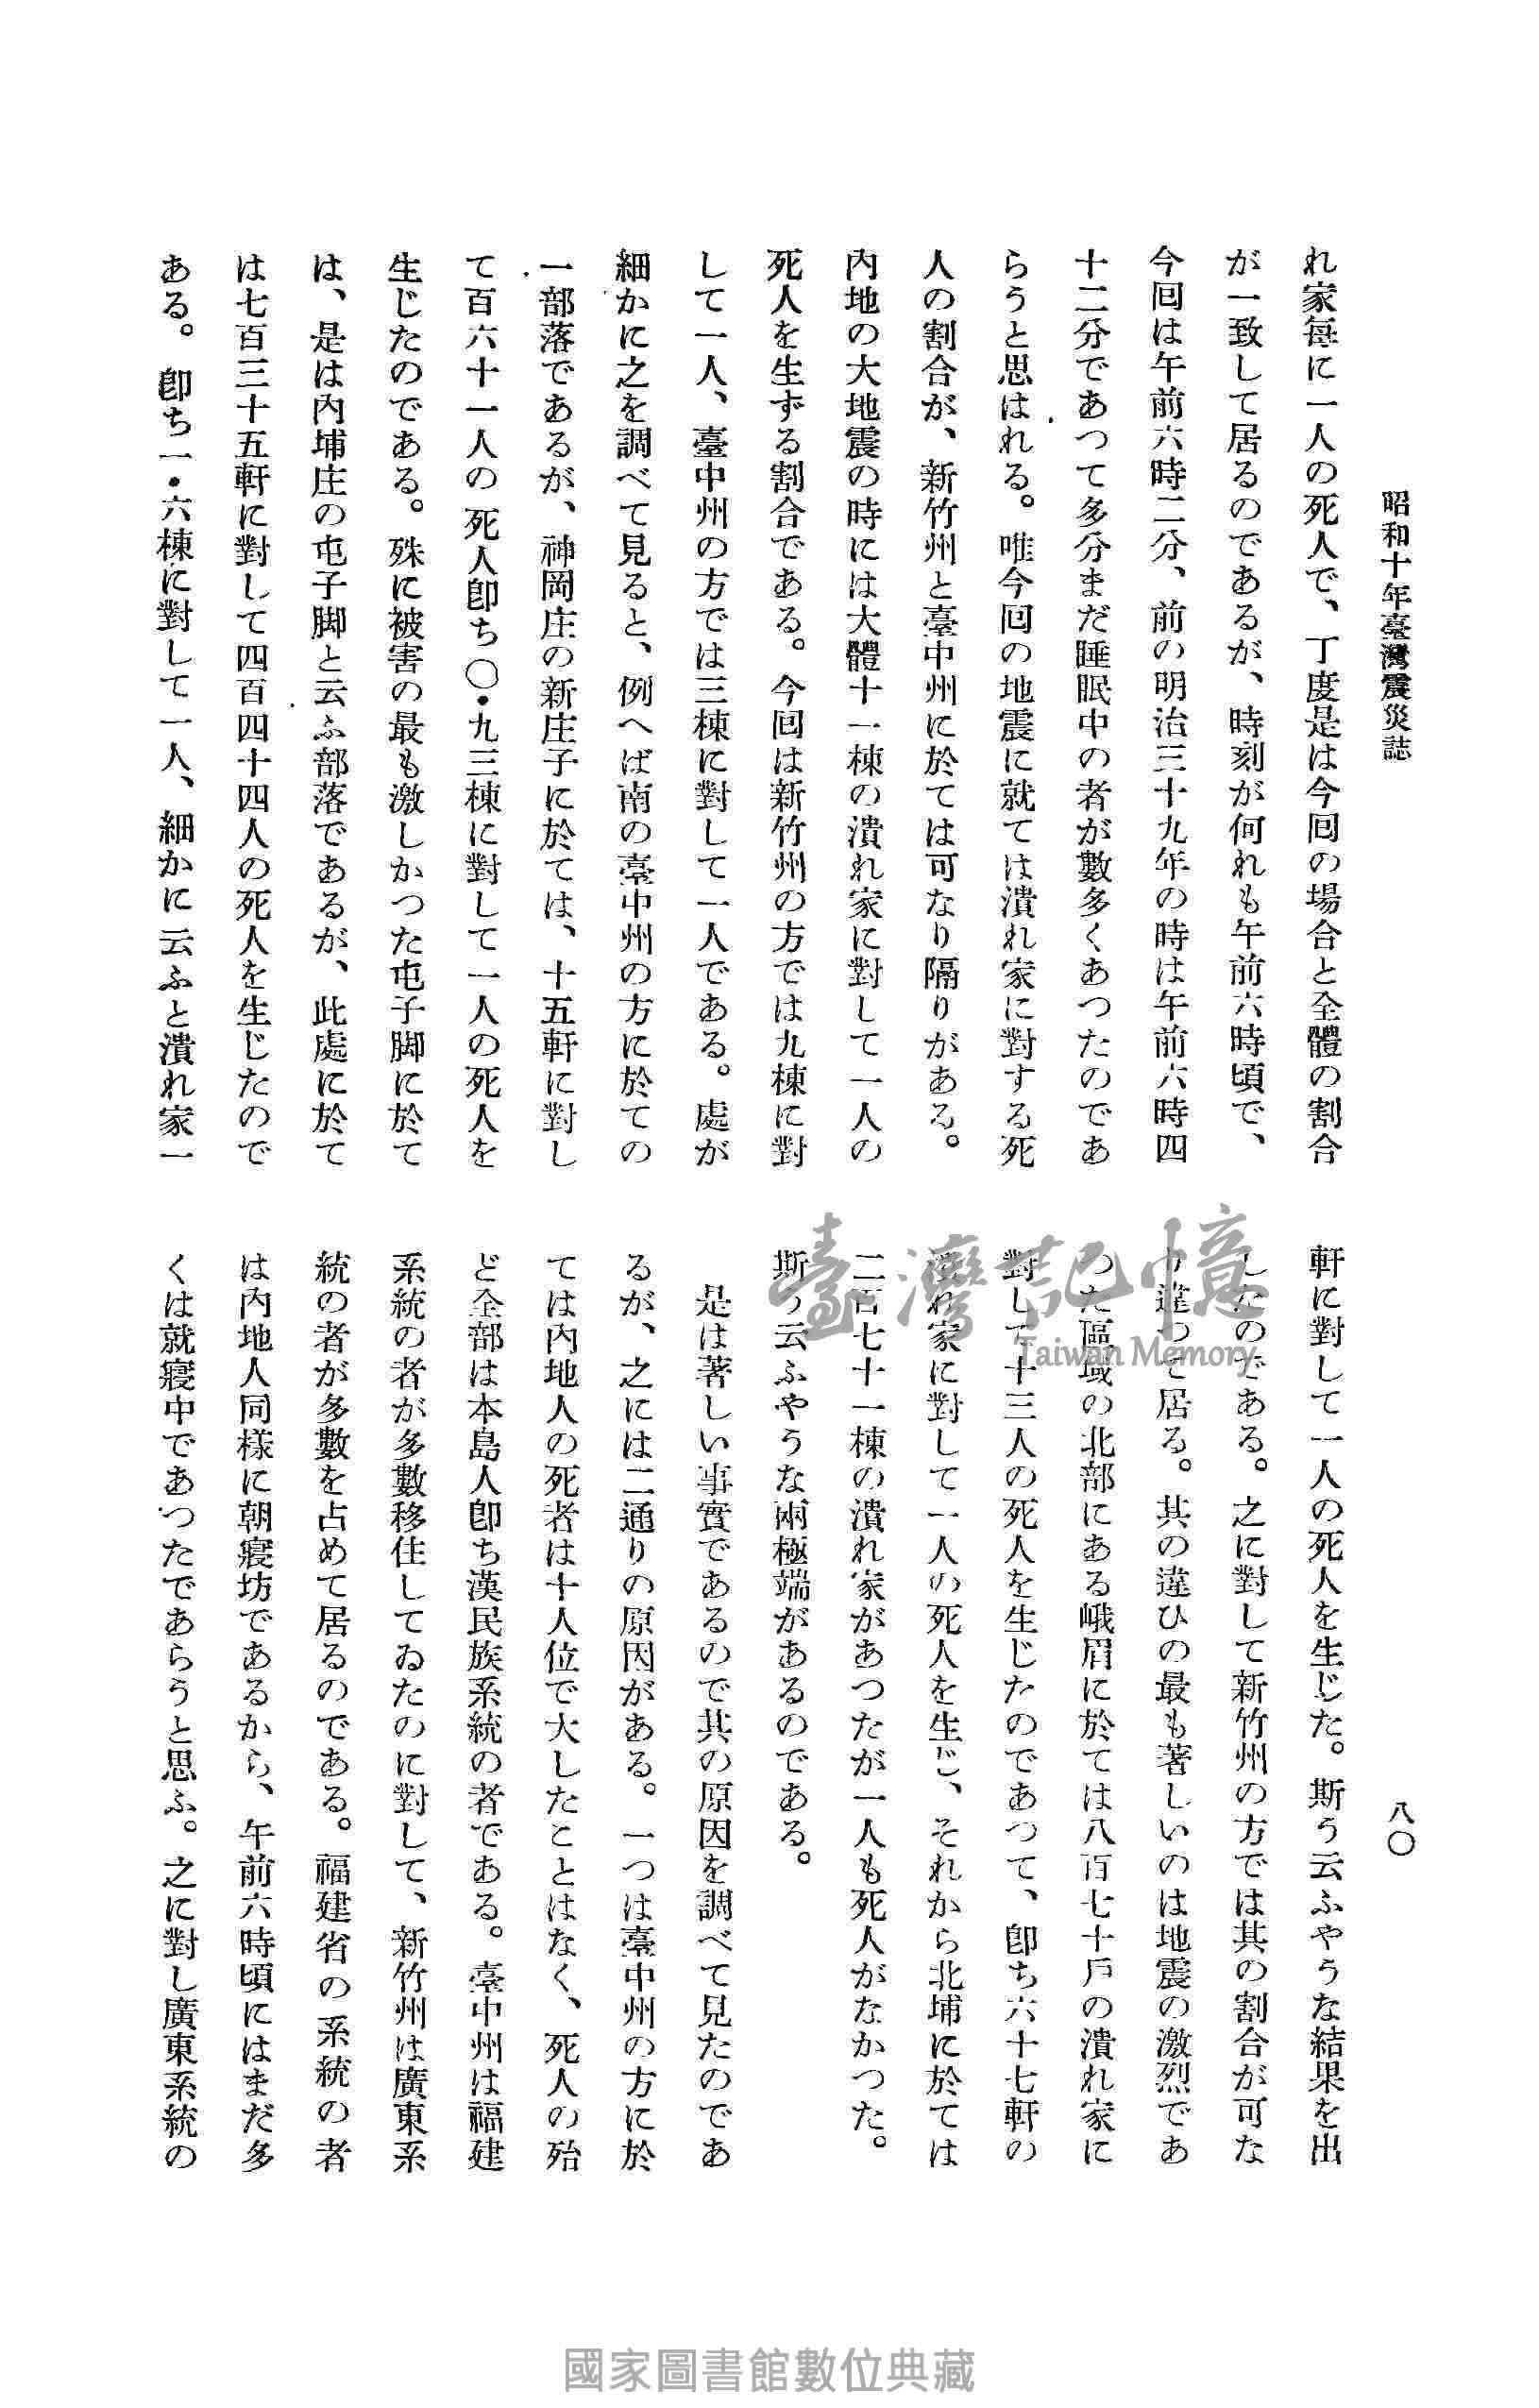 昭和十年臺灣震災誌
八〇
れ家每に一人の死人で、丁度是は今回の場合と全體の割合
が一致して居るのであるが、時刻が何れも午前六時頃で、
今回は午前六時二分、前の明治三十九年の時は午前六時四
十二分であつて多分まだ睡眠中の者が數多くあつたのであ
らうと思はれる。唯今回の地震に就ては潰れ家に對する死
人の割合が、新竹州と臺中州に於ては可なり隔りがある。
内地の大地震の時には大體十一棟の潰れ家に對して一人の
死人を生ずる割合である。今回は新竹州の方では九棟に對
して一人、臺中州の方では三棟に對して一人である。處が
細かに之を調べて見ると、例へば南の臺中州の方に於ての
一部落であるが、神岡庄の新庄子に於ては、十五軒に對し
て百六十一人の死人卽ち〇・九三棟に對して一人の死人を
生じたのである。殊に被害の最も激しかつた屯子脚に於て
は、是は内埔庄の屯子脚と云ふ部落であるが、此處に於て
は七百三十五軒に對して四百四十四人の死人を生じたので
ある。卽ち一・六棟に對して一人、細かに云ふと潰れ家一
軒に對して一人の死人を生じた。斯う云ふやうな結果を出
したのである。之に對して新竹州の方では其の割合が可な
り違つて居る。其の違ひの最も著しいのは地震の激烈であ
つた區域の北部にある峨眉に於ては八百七十戸の潰れ家に
對して十三人の死人を生じたのであつて、卽ち六十七軒の
潰れ家に對して一人の死人を生じ、それから北埔に於ては
二百七十一棟の潰れ家があつたが一人も死人がなかつた。
斯う云ふやうな兩極端があるのである。
是は著しい事實であるので其の原因を調べて見たのであ
るが、之には二通りの原因がある。一つは臺中州の方に於
ては内地人の死者は十人位で大したことはなく、死人の殆
ど全部は本島人卽ち漢民族系統の者である。臺中州は福建
系統の者が多數移住してゐたのに對して、新竹州は廣東系
統の者が多數を占めて居るのである。福建省の系統の者
は内地人同樣に朝寢坊であるから、午前六時頃にはまだ多
くは就寢中であつたであらうと思ふ。之に對し廣東系統の
臺灣記憶
Taiwan Memory
國家圖書館數位典藏